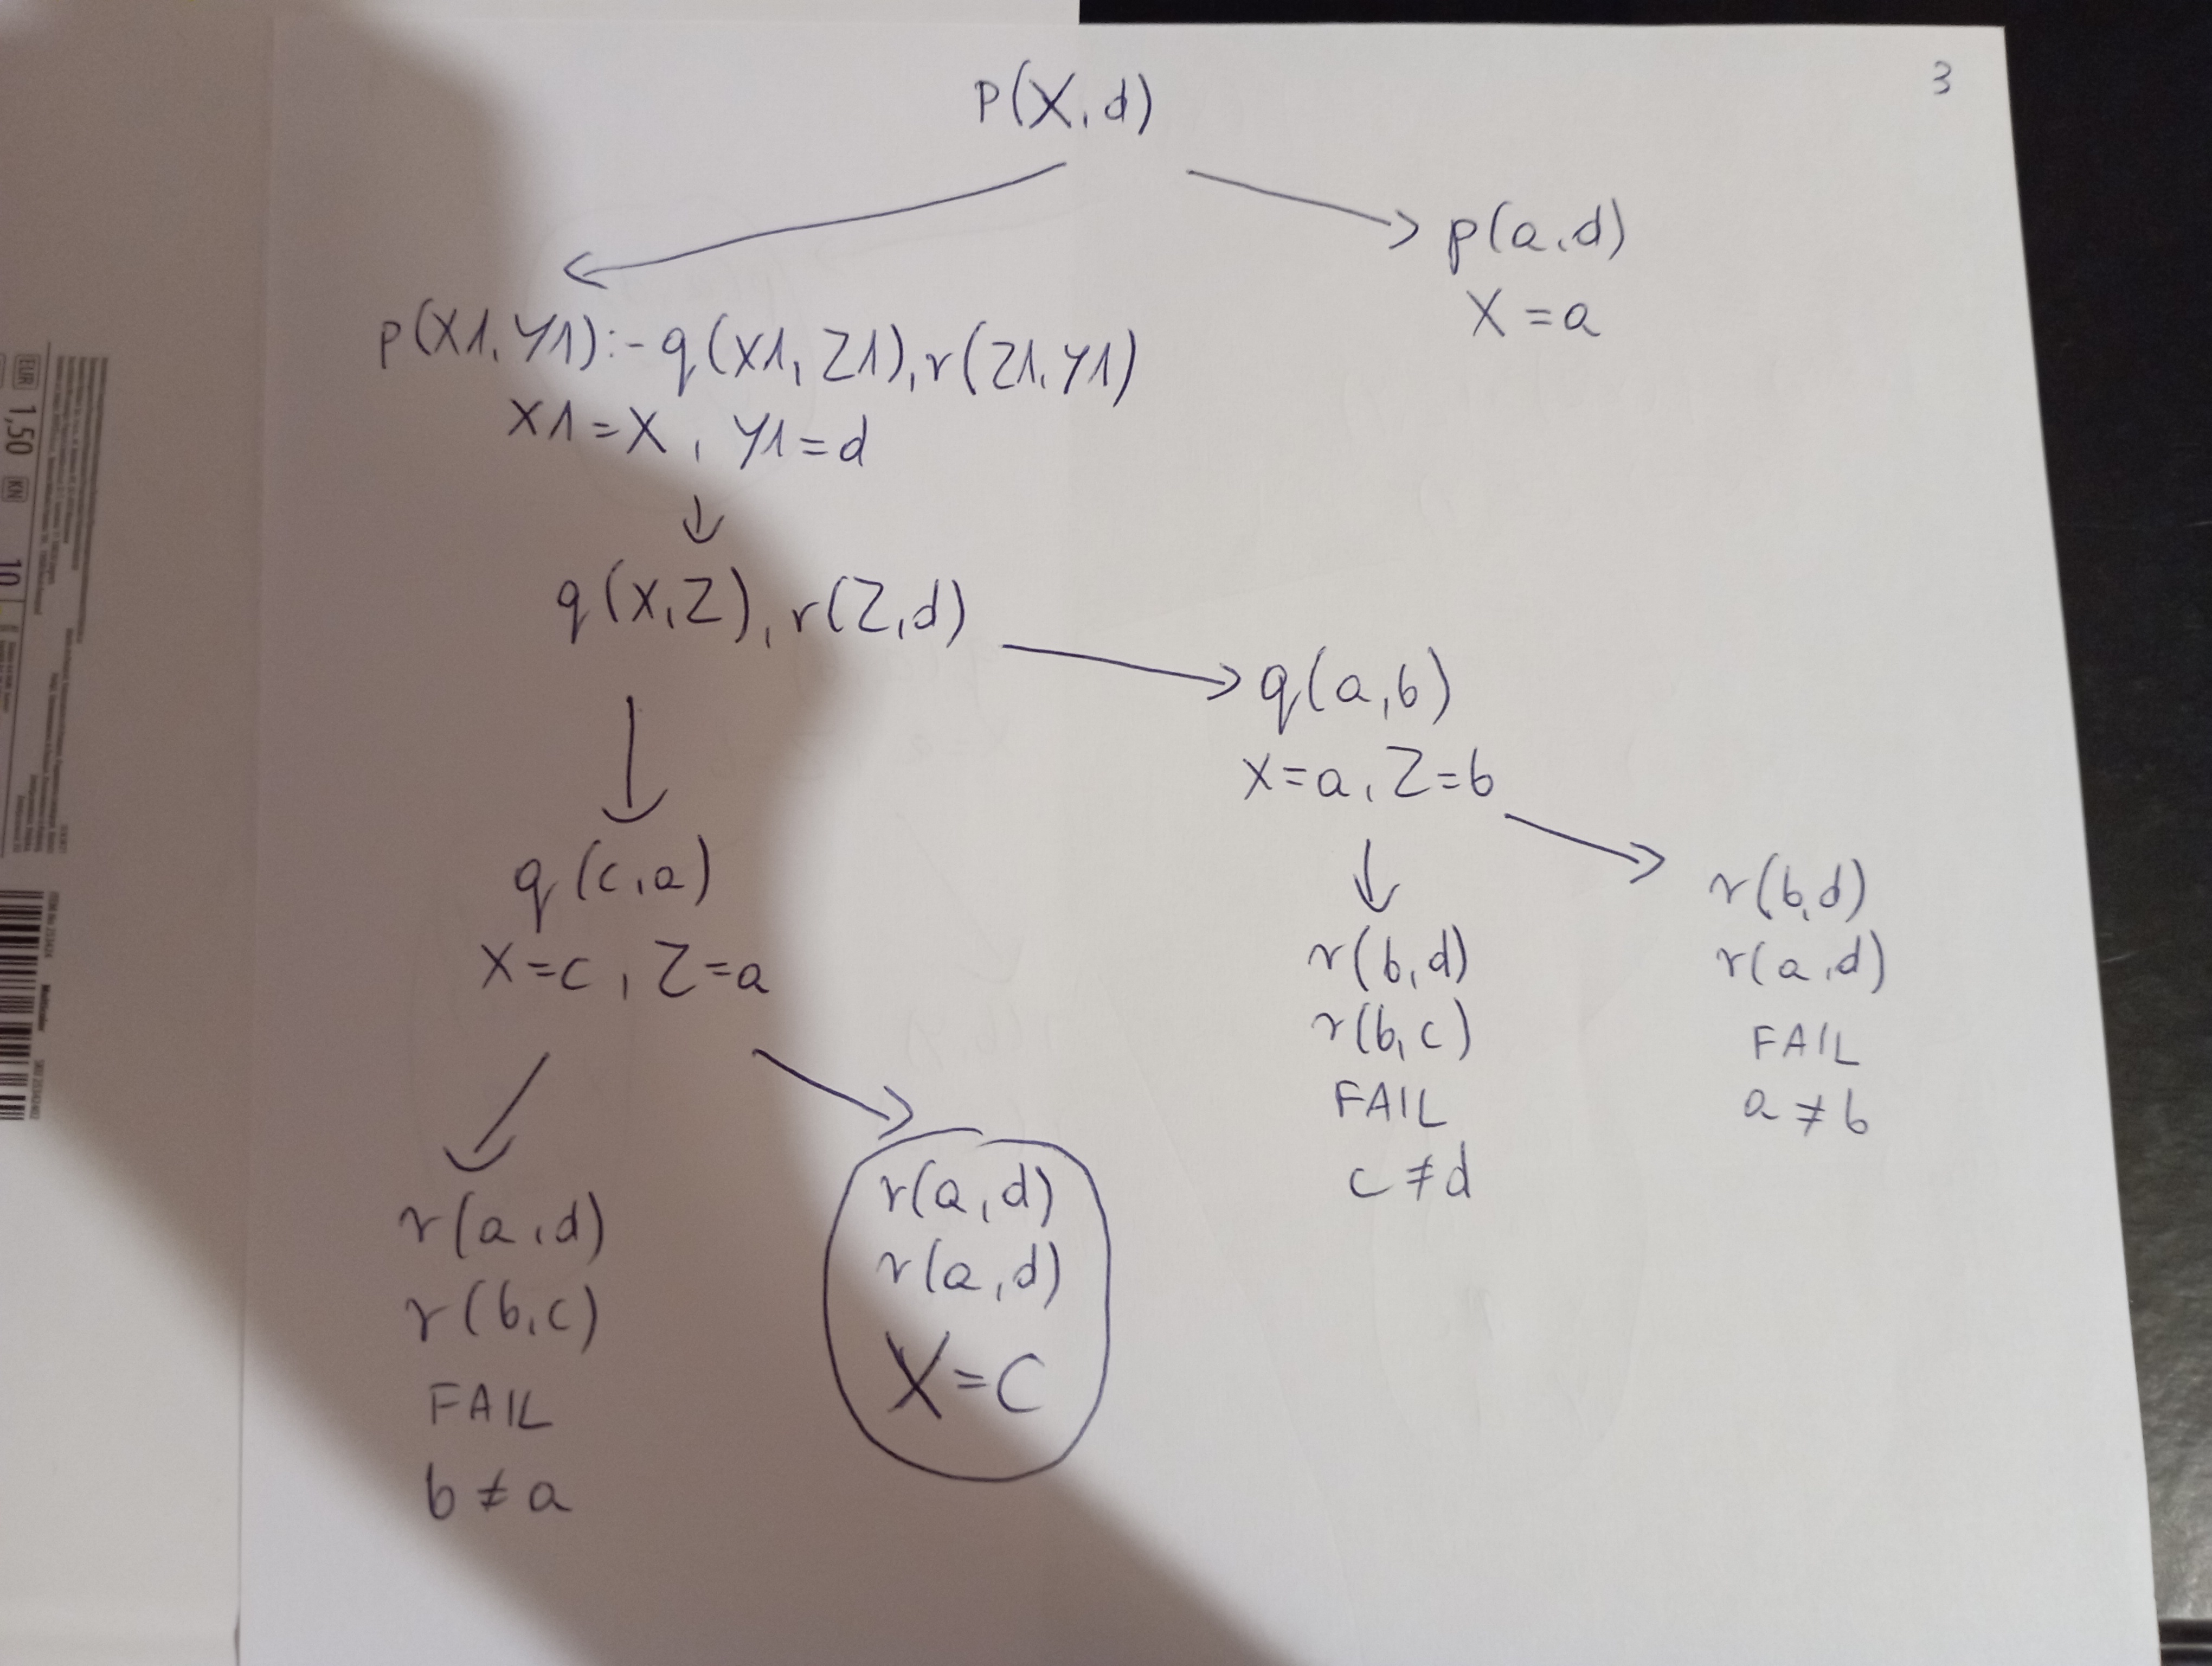 3
p(X,d)
p(a,d)
X=a
p(X1,Y1):-q(X1,Z1),r(Z1,Y1)
X1=X, Y1=d
q(X,Z),r(Z,d)
q(a,b)
X=a, Z=b
q(c,a)
X=c, Z=a
r(b,d)
r(b,c)
FAIL
c≠d
r(b,d)
r(a,d)
FAIL
a≠b
r(a,d)
r(b,c)
FAIL
b≠a
r(a,d)
r(a,d)
X=c
EUR 1,50 KN 10